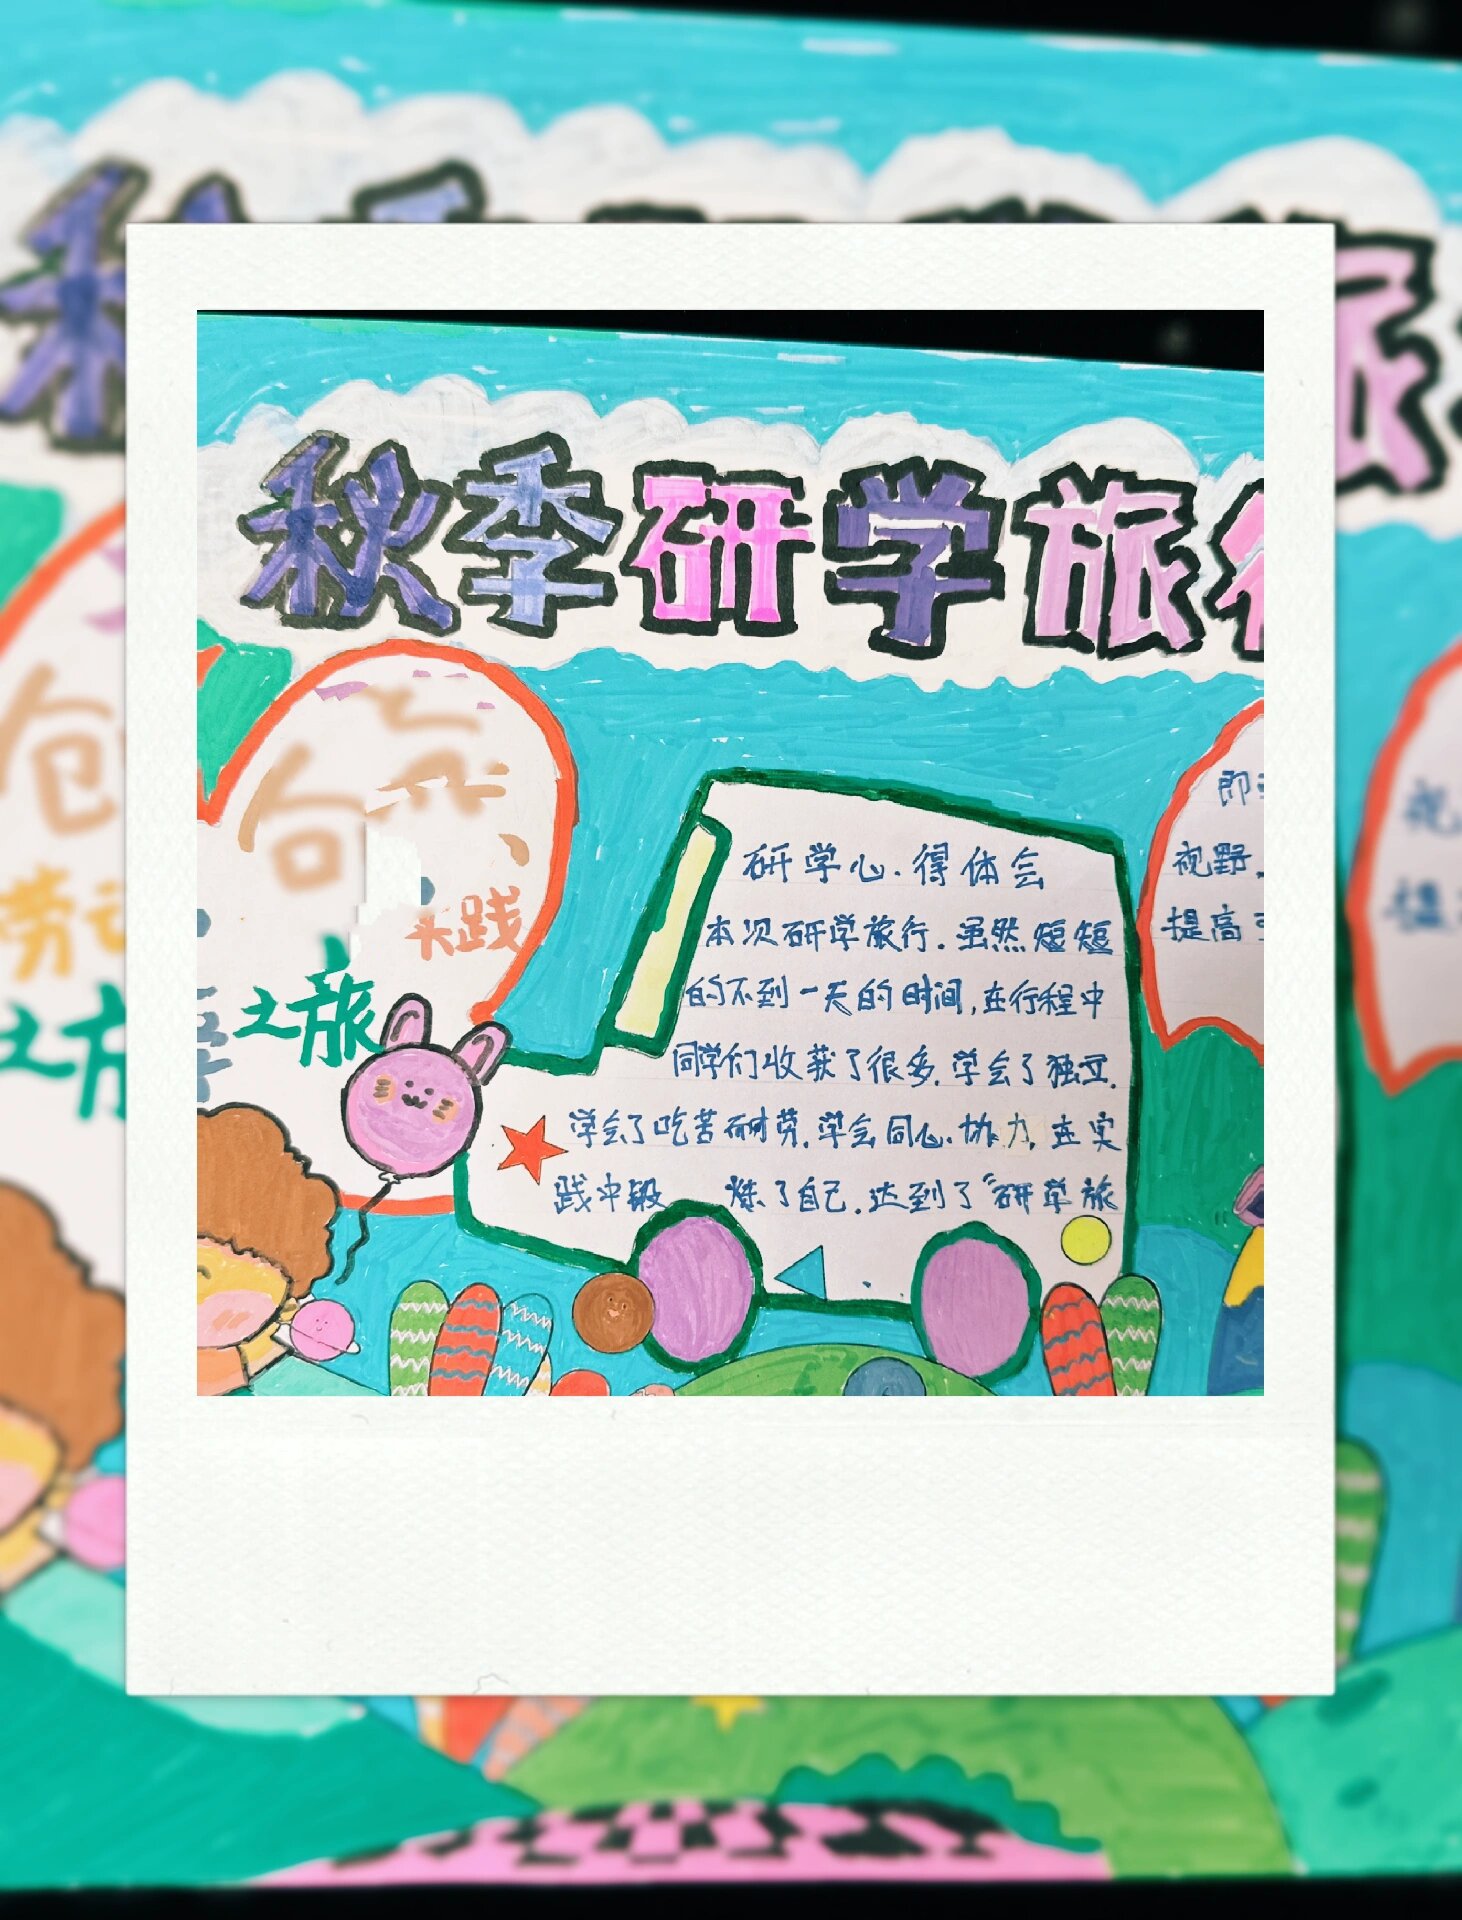 秋季研学旅
实践
之旅
研学心得体会
本次研学旅行.虽然短短
的不到一天的时间,在行程中
同学们收获了很多.学会了独立.
学会了吃苦耐劳.学会同心协力.在实
践中锻炼了自己.达到了“研学旅
视野
提高